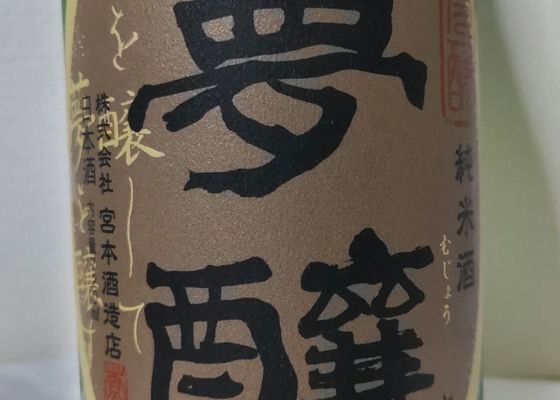 純米酒
むじょう
夢醸
を醸して
夢を醸
株式会社 宮本酒造店
日本酒 内容量